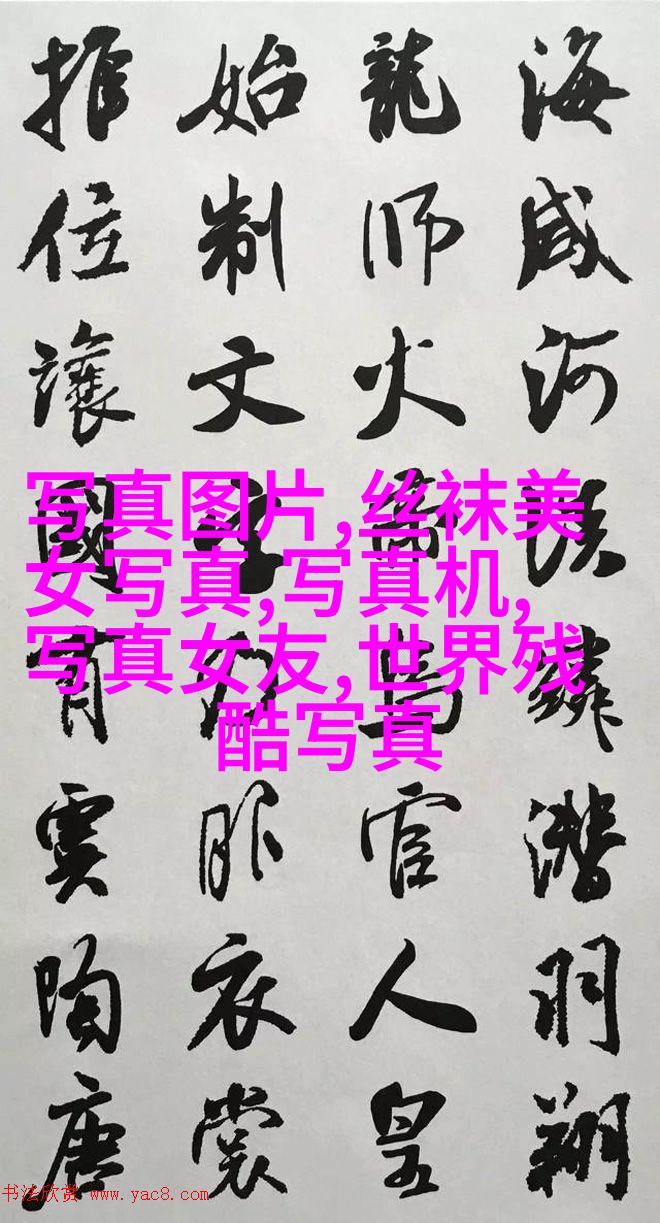 海咸河淡鱗潛羽翔
龍師火帝鳥官人皇
始制文字乃服衣裳
推位讓國有虞陶唐
写真图片,丝袜美
女写真,写真机,
写真女友,世界残
酷写真
书法欣赏 www.yac8.com